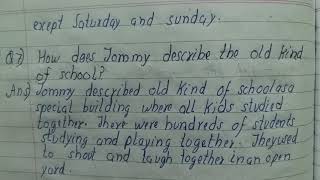 exept Saturday and sunday.
Q.7) How does Tommy describe the old kind
of school?
Ans) Tommy described old kind of school as a
special building where all kids studied
together. There were hundreds of students
studying and playing together. They used
to shout and laugh together in an open
yard.